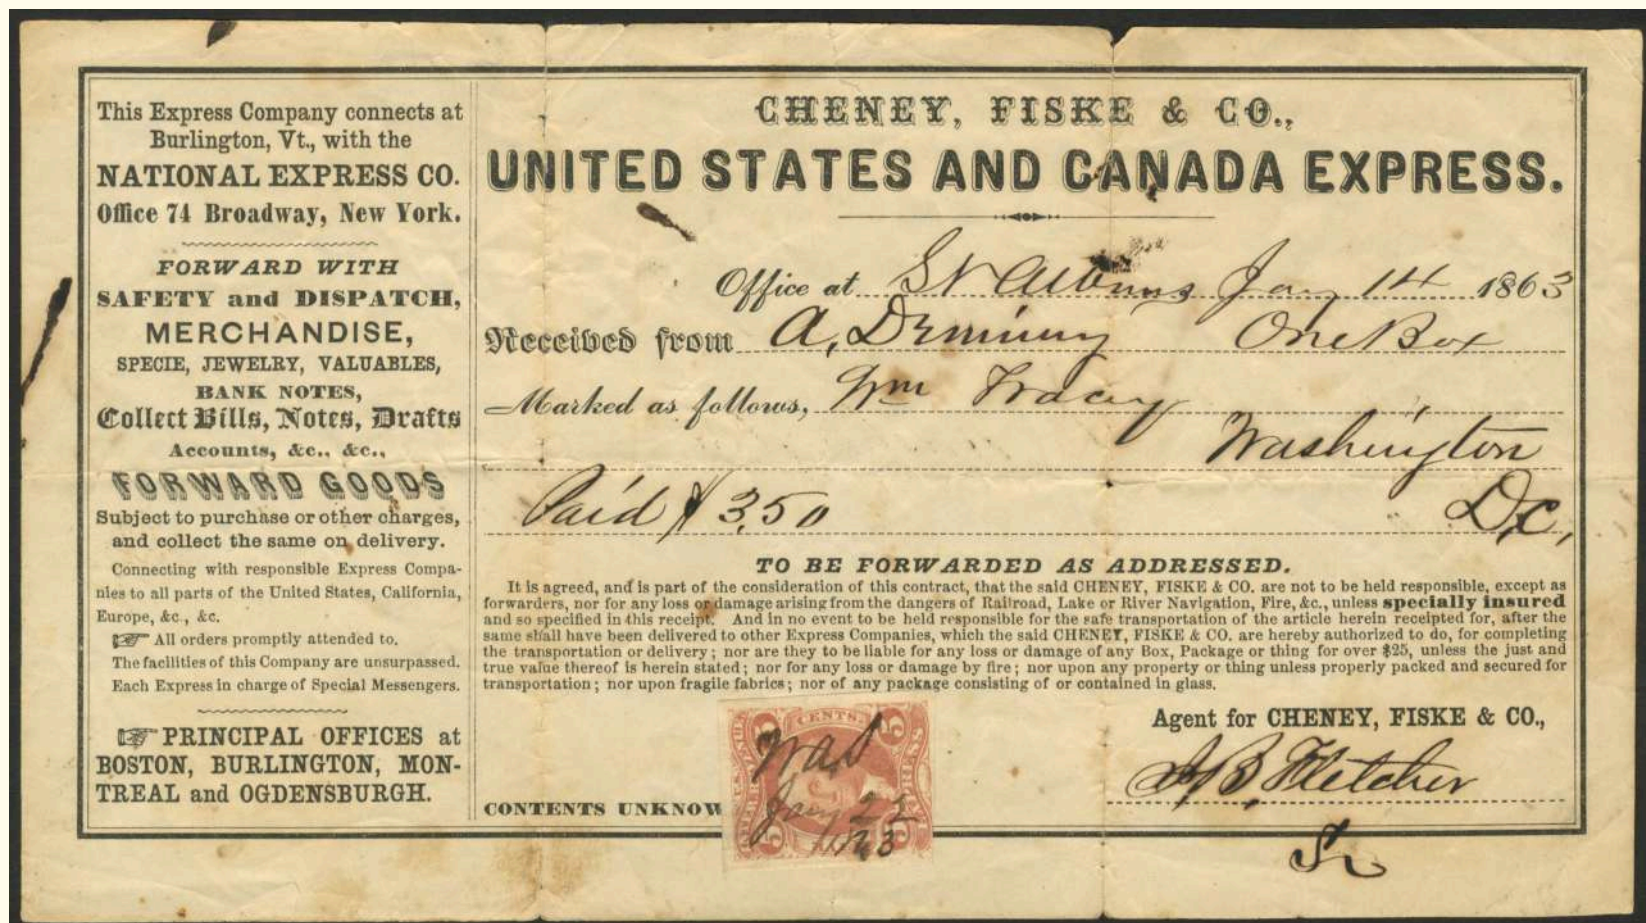 This Express Company connects at
Burlington, Vt., with the
NATIONAL EXPRESS CO.
Office 74 Broadway, New York.
FORWARD WITH
SAFETY and DISPATCH,
MERCHANDISE,
SPECIE, JEWELRY, VALUABLES,
BANK NOTES,
Collect Bills, Notes, Drafts
Accounts, &c., &c.,
FORWARD GOODS
Subject to purchase or other charges,
and collect the same on delivery.
Connecting with responsible Express Compa-
nies to all parts of the United States, California,
Europe, &c., &c.
☞ All orders promptly attended to.
The facilities of this Company are unsurpassed.
Each Express in charge of Special Messengers.
☞ PRINCIPAL OFFICES at
BOSTON, BURLINGTON, MON-
TREAL and OGDENSBURGH.
CHENEY, FISKE & CO.,
UNITED STATES AND CANADA EXPRESS.
Office at St Albans Jany 14 1863
Received from A, Deming One Box
Marked as follows, Wm Tracey
Washington
Paid $ 3,50 D,C,
TO BE FORWARDED AS ADDRESSED.
It is agreed, and is part of the consideration of this contract, that the said CHENEY, FISKE & CO. are not to be held responsible, except as
forwarders, nor for any loss or damage arising from the dangers of Railroad, Lake or River Navigation, Fire, &c., unless specially insured
and so specified in this receipt. And in no event to be held responsible for the safe transportation of the article herein receipted for, after the
same shall have been delivered to other Express Companies, which the said CHENEY, FISKE & CO. are hereby authorized to do, for completing
the transportation or delivery; nor are they to be liable for any loss or damage of any Box, Package or thing for over $25, unless the just and
true value thereof is herein stated; nor for any loss or damage by fire; nor upon any property or thing unless properly packed and secured for
transportation; nor upon fragile fabrics; nor of any package consisting of or contained in glass.
Agent for CHENEY, FISKE & CO.,
Fletcher
CONTENTS UNKNOW
5 CENTS. 5
EXPRESS
Jany 22
5 5